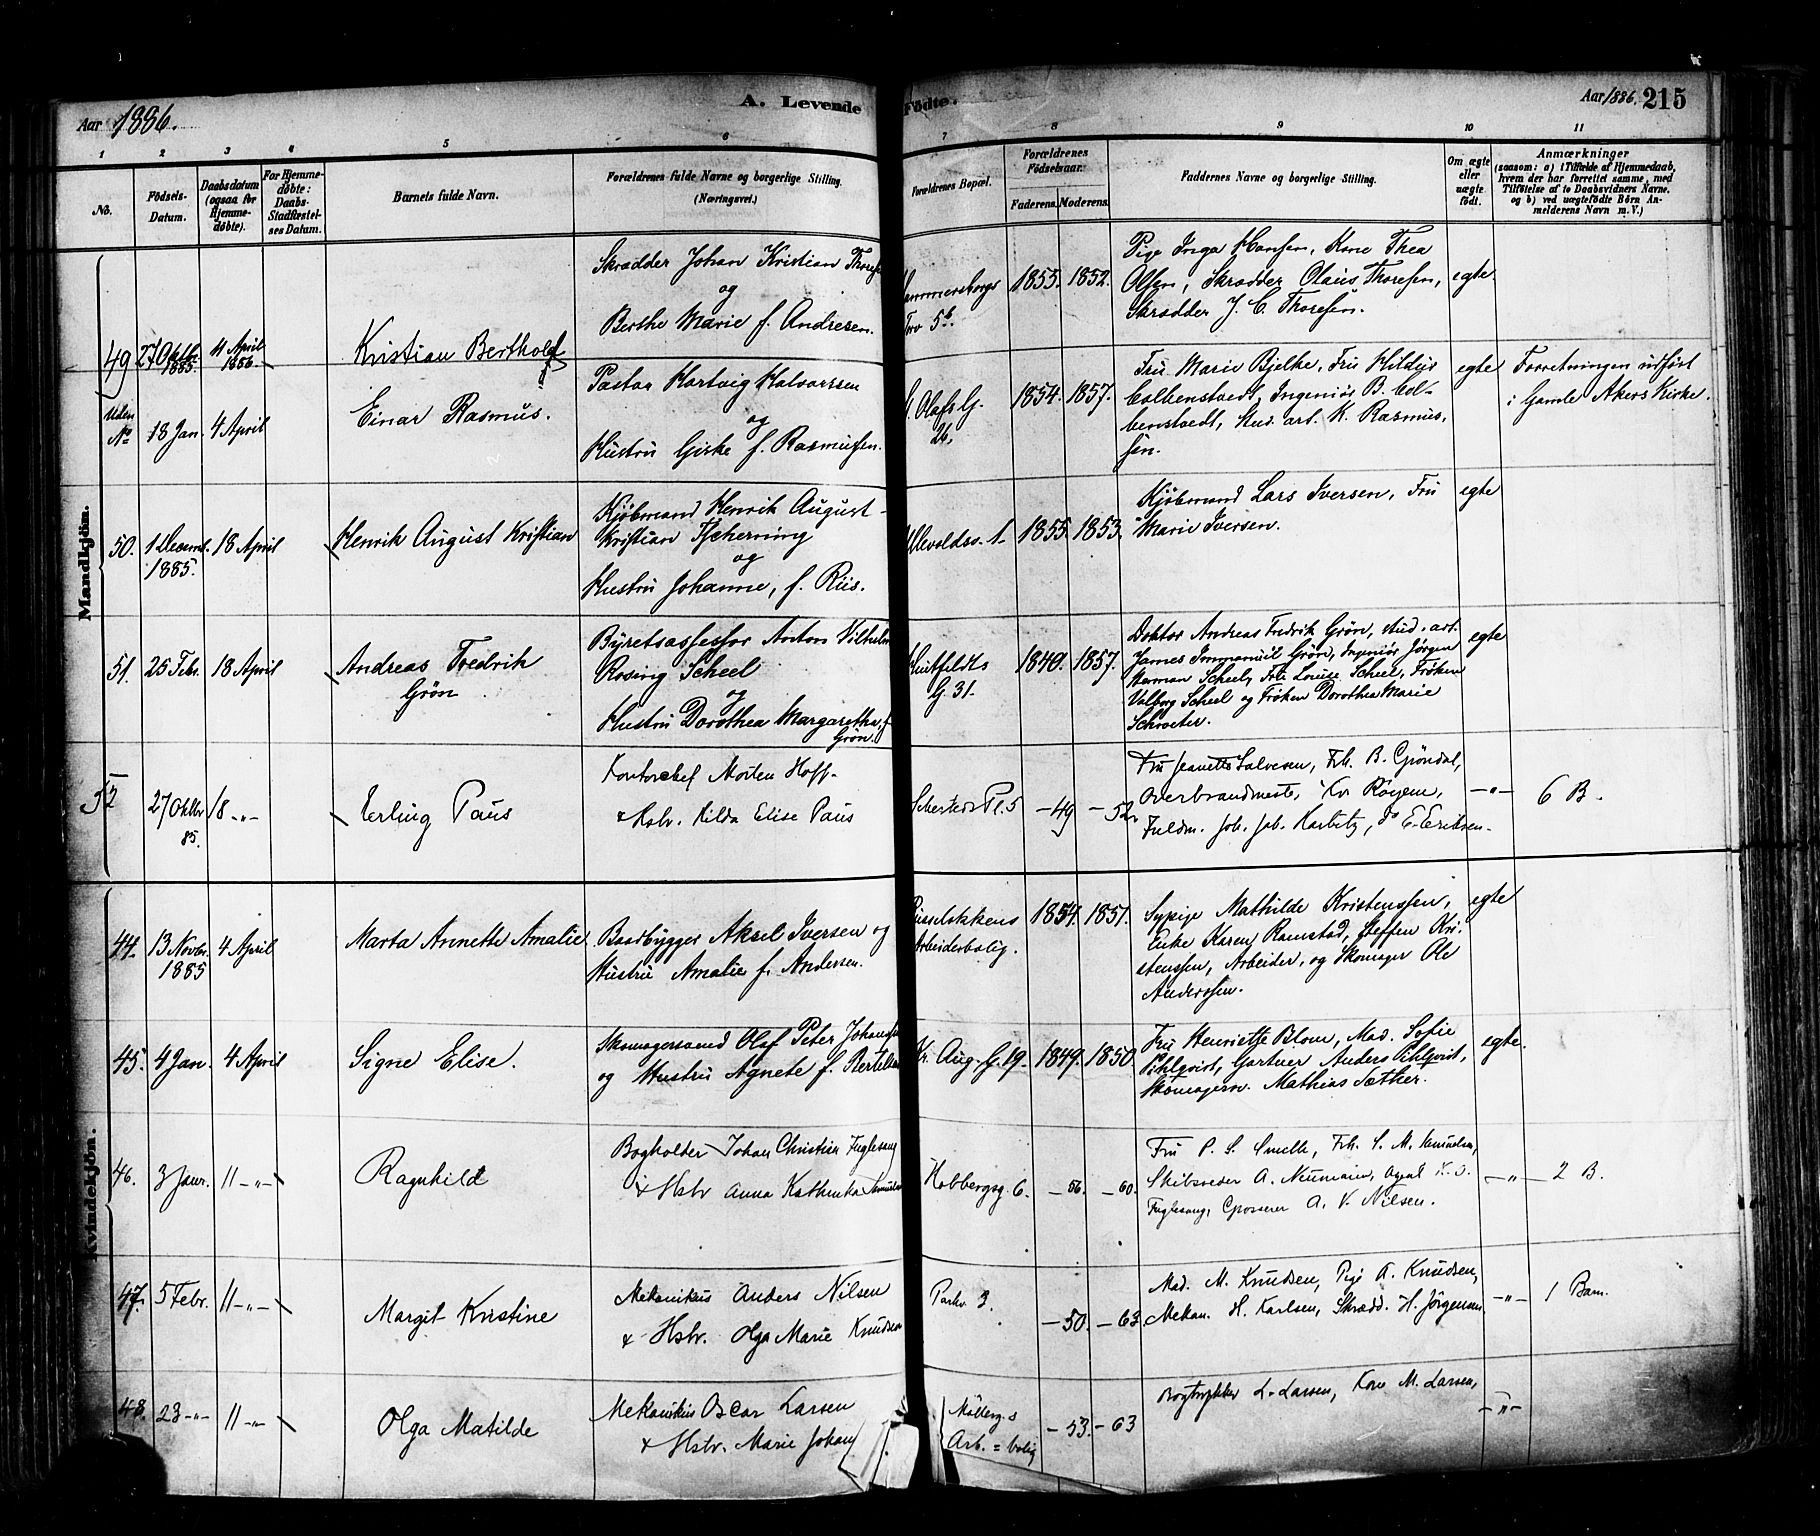 A. Levende
Aar 1886.
1 2 3 4 5 6
No.
Födsels-
Datum.
Daabsdatum
(ogsaa for
Hjemme-
døbte).
For Hjemme-
døbte:
Daabs-
Stadfæstel-
ses Datum.
Barnets fulde Navn.
Forældrenes fulde Navne og borgerlige Stilling.
(Næringsvei.)
Födte.
Aar 1886. 215
7 8 9 10 11
Forældrenes Bopæl.
Forældrenes
Födselsaar.
Faderens. Moderens.
Faddernes Navne og borgerlige Stilling.
Om ægte
eller
uægte
födt.
Anmærkninger
(saasom: a) i Tilfælde af Hjemmedaab,
hvem der har forrettet samme, med
Tilföielse af to Daabsvidners Navne.
og b) ved uægtefödte Börn An-
melderens Navn m. V.)
Mandkjön.
49 27 Oktb. 1885. 4 April 1886. Kristian Berthold
Skrædder Johan Kristian
og
Berthe Marie f. Andresen.
5b. 1853. 1852.
Pige Inga Hansen, Kone Thea
Olsen, Skrædder Olaus Thoresen,
Skrædder J. C. Thoresen.
egte
Uden No 18 Jan. 4 April Einar Rasmus.
Pastor Hartvig Halvorssen
og
Hustru Giske f. Rasmussen.
Olafs G.
26.
1854. 1857.
Fru Marie Bjelke, Fru Hildur
Colbenstvedt, Ingeniör B. Col-
benstvedt, Stud. art. K. Rasmus-
sen.
egte
Forretningen udført
i Gamle Akers Kirke.
50. 1 Decemb. 1885. 18 April Henrik August Kristian
Kjöbmand Henrik August
Kristian Tscherning
og
Hustru Johanne, f. Riis.
Ullevoldsv. 1. 1855. 1853.
Kjöbmand Lars Iversen, Fru
Marie Iversen.
egte
51. 25 Febr. 18 April Andreas Fredrik
Grön
Byretsassessor Anton Vilhelm
Rosing Scheel
og
Hustru Dorothea Margaretha, f.
Grön.
Huitfeldts
G. 31.
1840. 1857.
Doktor Andreas Fredrik Grön, stud. art.
James Immanuel Grön, Ingeniör Jörgen
Herman Scheel, Frk. Louise Scheel, Fröken
Valborg Scheel og Fröken Dorothea Marie
Schroeter.
egte
52 27 Oktbr 85. 18 -„- Erling Paus
Kontorchef Morten Hoff
& Hstr. Hilda Elise Paus
Pl. 5 - 49 - 52
Fru Jeanette Salvesen, Frk. B. Gröndal,
Overbrandmest.
Fuldm. Joh. Joh. Karbitz, do E. Eriksen.
-„- 6 B.
Kvindekjön.
44. 13 Novbr. 1885 4 April Marta Annette Amalie
Baadbygger Aksel Iversen og
Hustru Amalie f. Andersen.
Arbeiderbolig.
1854. 1851.
Sypige Mathilde Kristenssen,
Enke Karen Ramstad, Steffen Kri-
stenssen, Arbeider, og Skomager Ole
Anderssen.
egte
45. 4 Jan. 4 April Signe Elise.
Skomagersvend Olaf Peter
og Hustru Agnete f.
Kr. Aug. G. 19. 1849. 1850.
Fru Henriette Blom, Mad. Sofie
Pihlqvist, Gartner Anders Pihlqvist,
Skomagersv. Mathias Sæther.
egte.
46. 3 Janr. 11 -„- Ragnhild
Bogholder Johan Christian Fuglesang
& Hstr Anna Kathinka
Holbergsg. 6. - 56. - 60.
Fru P. S. Smette, Frk. S. M. Knudsen,
Skibsreder A. Neumann, Agent
Fuglesang, Grosserer A. V. Nilsen.
-„- 2 B.
47. 5 Febr. 11 -„- Margit Kristine
Mekanikus Anders Nilsen
& Hstr. Olga Marie Knudsen
Parkv. 3. - 50. - 63.
Mad. M. Knudsen, Pige A. Knudsen,
Mekan. H. Karlsen, Skrædd. H. Jörgensen
-„- 1 Barn.
48. 23 -„- 11 -„- Olga Matilde
Mekanikus Oscar Larsen
& Hstr. Marie Johan
Mölleg.s
Arb. = bolig
- 53. - 63
Bogtrykker L. Larsen, Kone M. Larsen,
-„-